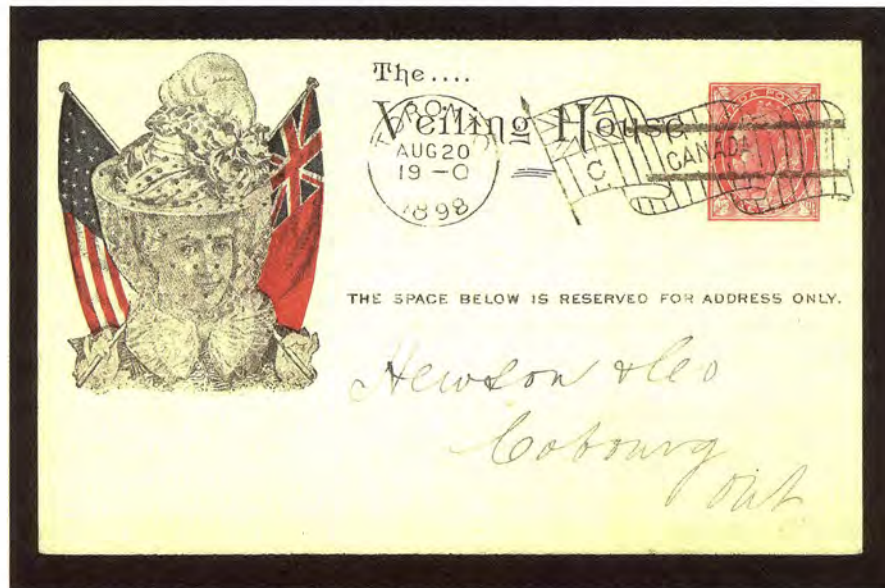 The....
Veiling House
TORONTO
AUG 20
19-0
1898
C
CANADA
THE SPACE BELOW IS RESERVED FOR ADDRESS ONLY.
Hewson & Co
Cobourg
Ont